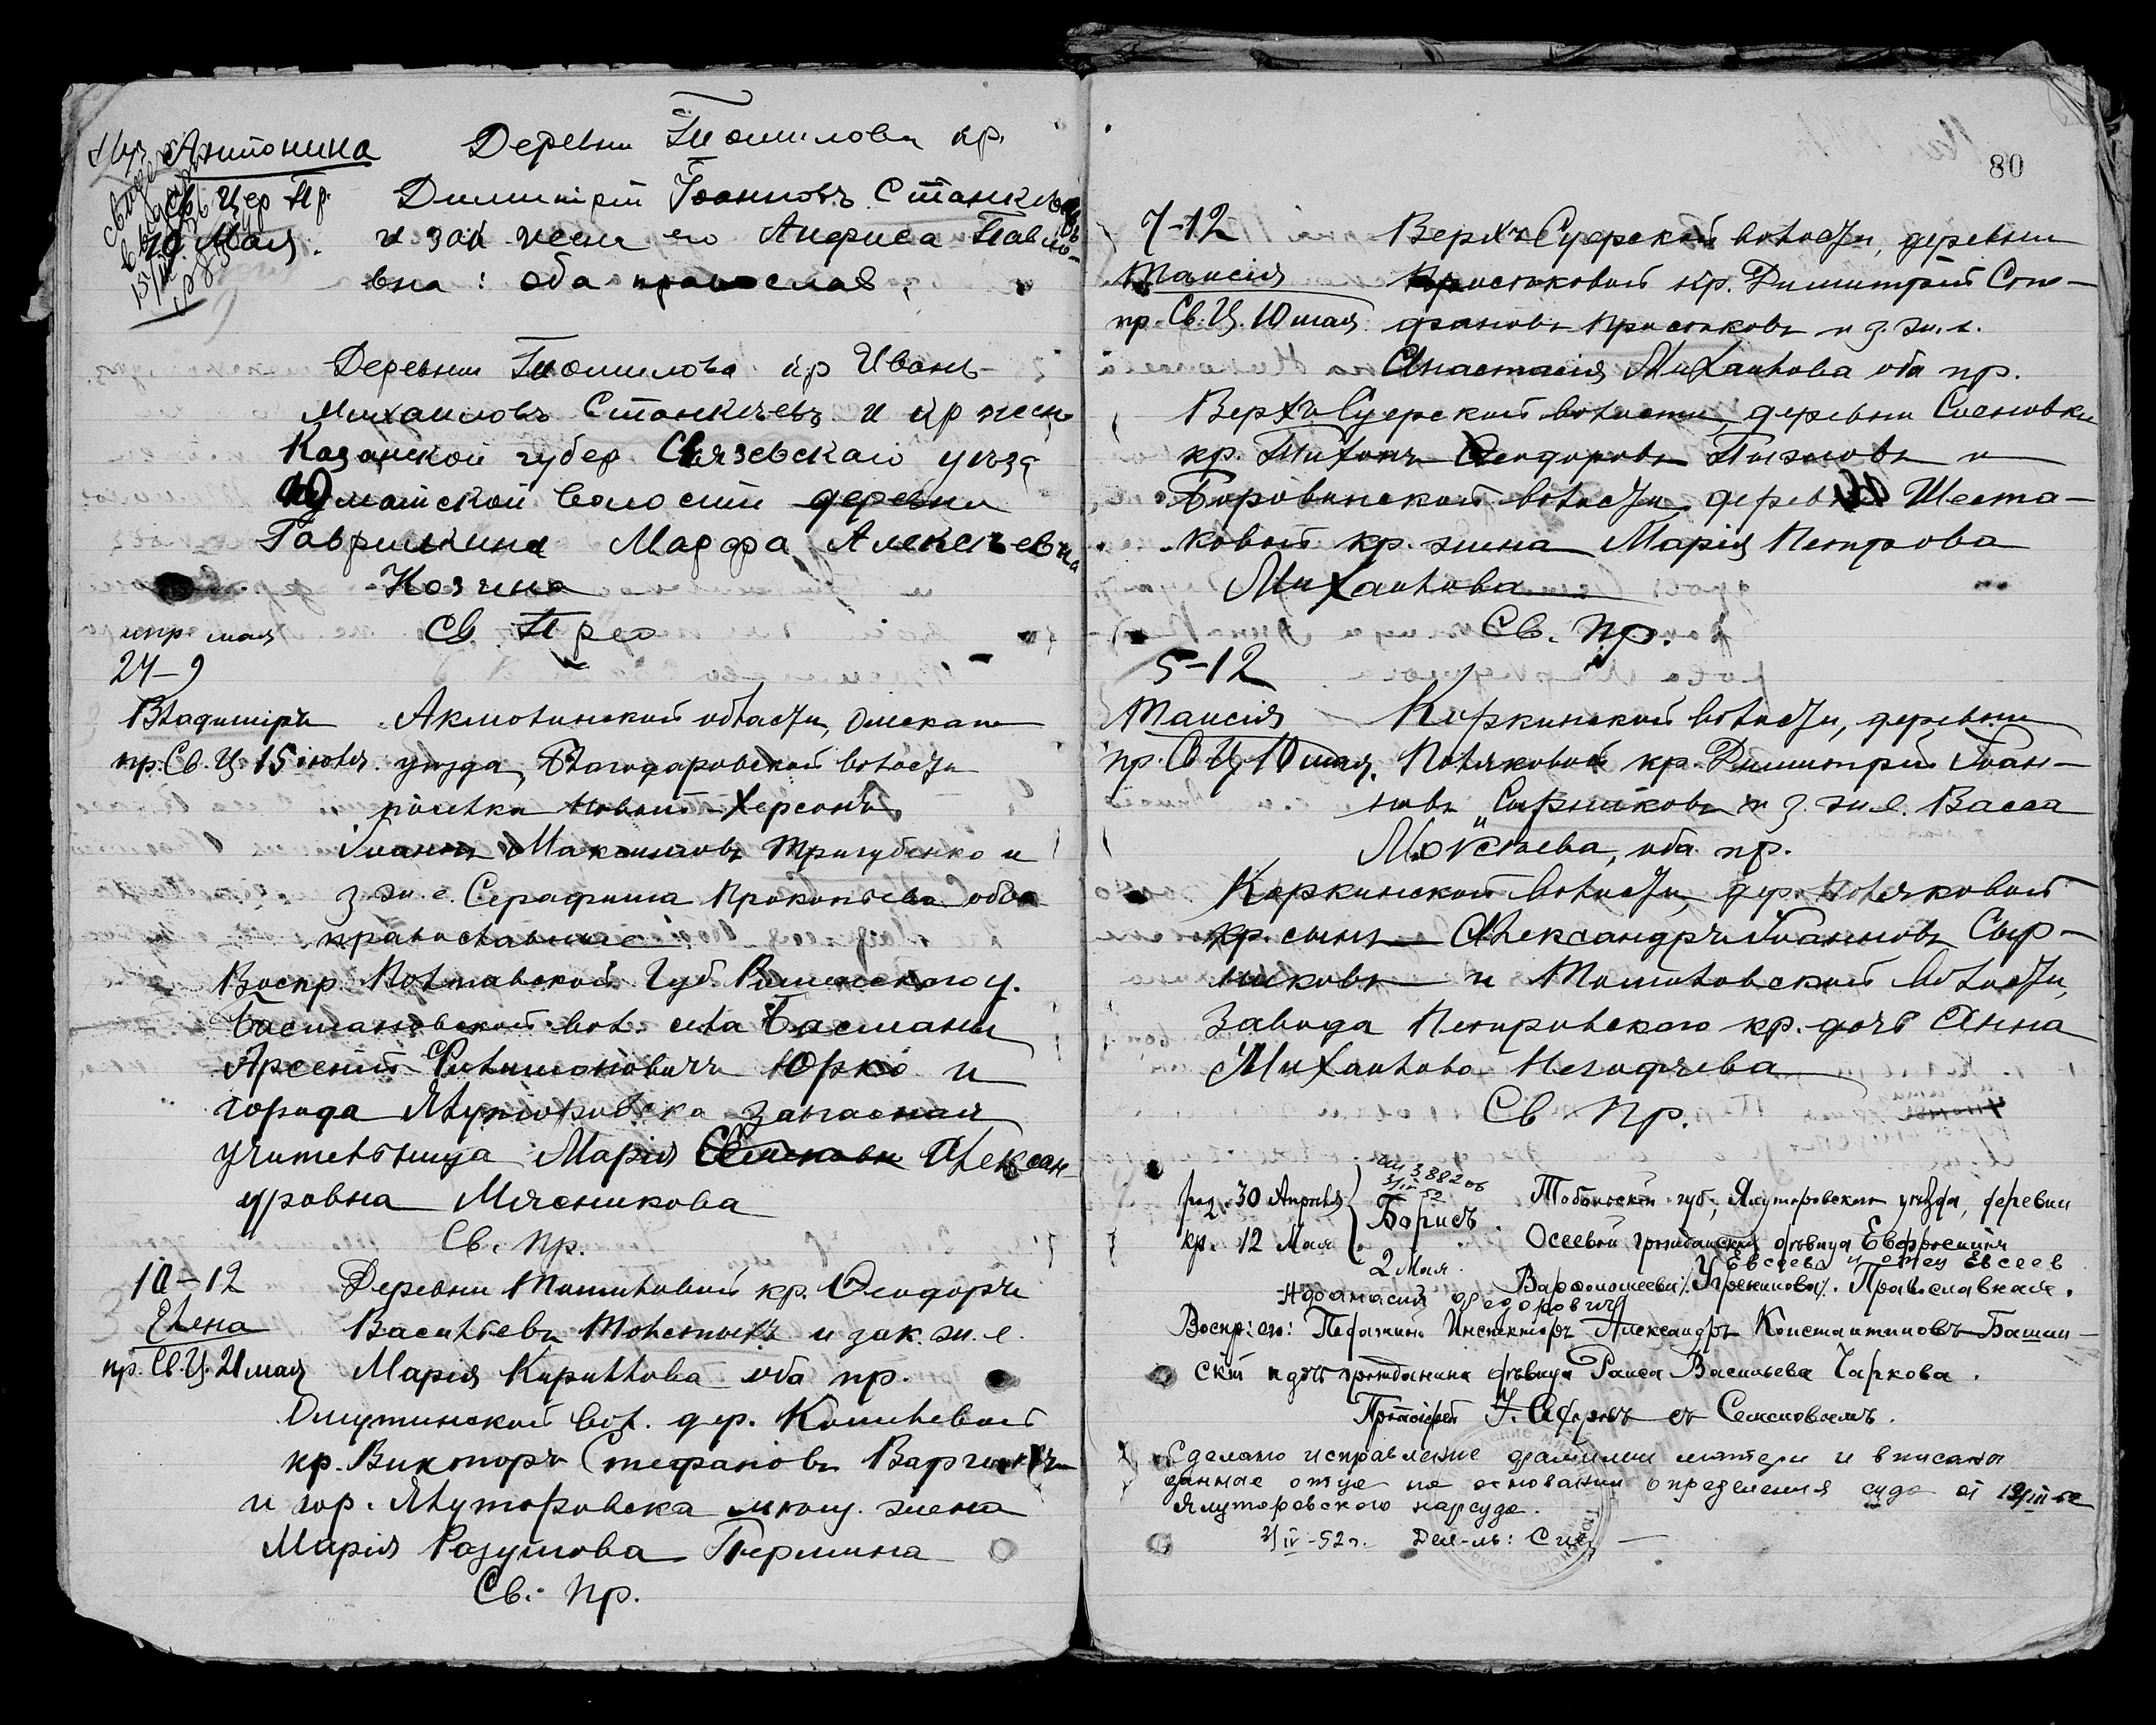 Антонина
Деревни Томилови кр.
Св Цер Пр.
Димитрій Іоанновъ Станкѣевъ
10 Мая.
и зак жена его Анфиса Павло-
вна: оба православ.
Деревни Томилова кр Иванъ
Михаиловъ Станкѣевъ и кр жена
Казанской губер Свіязевскаго уѣзд
волости деревни
Гавриикина Марфа Алексѣевна
Козина
Св. Прео
мая
24-9
Владиміръ
пр. Св. Ц. 15 іюля.
Акмолинской области, Омскаго
уѣзда, Благодаровской волости
посёлка Новый-Херсонъ
Іоаннъ Максимовъ Тригубенко и
з. ж. е. Серафима Прокопьева оба
православные
Воспр. Полтавской Губ. Роменскаго у.
Басмановской вол. села Басманы
Арсеній Филимоновичъ Юрко и
города Ялуторовска запасная
учительница Марія Алексан-
дровна Мясникова
Св. Пр.
10-12
Елена
пр. Св. Ц. 21 мая
Деревни Томиловой кр. Ѳеодоръ
Васильевъ Толстыхъ и зак. ж. е.
Марія Кириллова оба пр.
Омутинской вол. дер. Кошелевой
кр. Викторъ Стефановъ
и гор. Ялуторовска мѣщ. жена
Марія Разумова Пермина
Св. Пр.
80
7-12
Таисія
пр. Св. Ц. 10 мая
Верхъ-Суерской волости, деревни
Приспоковой кр. Димитрій Сте-
фановъ Приспоковъ и з. ж. е.
Анастасія Михаилова оба пр.
Верхъ-Суерской волости, деревни Сосновки
кр. Тихонъ Ѳеодоровъ и
Боровинской волости деревни Шеста-
ковой кр. жена Марія Петрова
Михаилова
Св. Пр.
5-12
Таисія
пр. Св. Ц. 10 мая.
Коркинской волости, деревни
Поляковой кр. Димитрій Іоан-
новъ Сырниковъ и з. ж. е. Васса
Моисеева, оба пр.
Коркинской волости, дер. Поляковой
кр. сынъ Александръ Іоанновъ Сыр-
никовъ и Томиловской волости,
завода Петровскаго кр. дочь Анна
Михаилова Негодяева
Св Пр.
388206
3/IV 52
род. 30 Апрѣля
кр. 12 Мая
Борисъ.
2 Мая.
Тобольской губ., Ялуторовскаго уѣзда, деревни
Осеевой гражданская дѣвица Евфросинія
Евсеева и отец Евсеев
Варѳоломеева /Угренинова/. Православная.
Афонасий Федорович
Воспр: его: Податной Инспекторъ Александръ Константиновъ Башин-
скій и дочь гражданина дѣвица Раиса Васильева Чаркова.
Протоіерей І. Сѣдоровъ съ Семеновымъ.
Сделано исправление фамилии матери и вписаны
данные отца на основании определения суда от 19/III-52
Ялуторовского нарсуда.
3/IV-52г. Дел-ль: